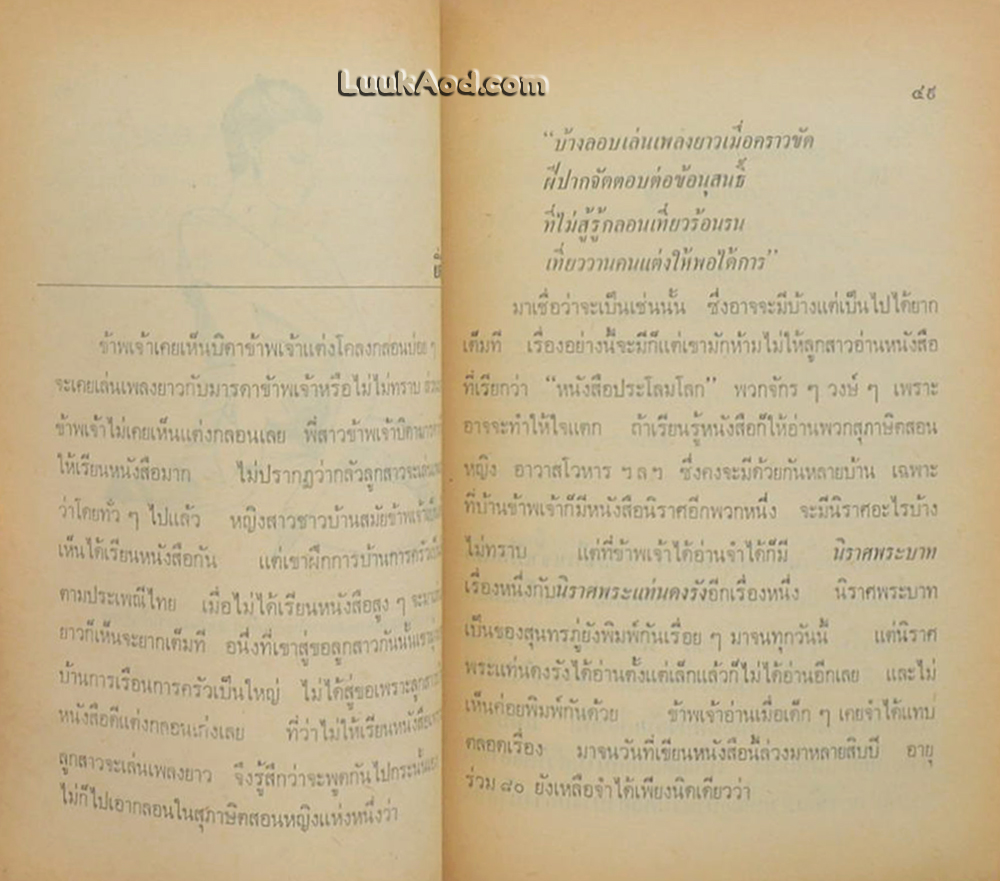 LuukAod.com
ข้าพเจ้าเคยเห็นบิดาข้าพเจ้าแต่งโคลงกลอนบ่อย ๆ
จะเคยเล่นเพลงยาวกับมารดาข้าพเจ้าหรือไม่ไม่ทราบ
ข้าพเจ้าไม่เคยเห็นแต่งกลอนเลย พี่สาวข้าพเจ้าบิดามารดา
ให้เรียนหนังสือมาก ไม่ปรากฏว่ากลัวลูกสาวจะเล่น
ว่าโดยทั่ว ๆ ไปแล้ว หญิงสาวชาวบ้านสมัยข้าพเจ้า
เห็นได้เรียนหนังสือกัน แต่เขาฝึกการบ้านการครัว
ตามประเพณีไทย เมื่อไม่ได้เรียนหนังสือสูง ๆ จะมา
ยาวก็เห็นจะยากเต็มที อนึ่งที่เขาสู่ขอลูกสาวกันนั้น
บ้านการเรือนการครัวเป็นใหญ่ ไม่ได้สู่ขอเพราะลูกสาว
หนังสือดีแต่งกลอนเก่งเลย ที่ว่าไม่ให้เรียนหนังสือ
ลูกสาวจะเล่นเพลงยาว จึงรู้สึกว่าจะพูดกันไปกระนั้น
ไม่ก็ไปเอากลอนในสุภาษิตสอนหญิงแห่งหนึ่งว่า
๔๙
“บ้างลอบเล่นเพลงยาวเมื่อคราวขัด
ฝีปากจัดตอบต่อข้อนุสนธิ์
ที่ไม่สู้รู้กลอนเที่ยวร้อนรน
เที่ยววานคนแต่งให้พอได้การ”
มาเชื่อว่าจะเป็นเช่นนั้น ซึ่งอาจจะมีบ้างแต่เป็นไปได้ยาก
เต็มที เรื่องอย่างนี้จะมีก็แต่เขามักห้ามไม่ให้ลูกสาวอ่านหนังสือ
ที่เรียกว่า “หนังสือประโลมโลก” พวกจักร ๆ วงษ์ ๆ เพราะ
อาจจะทำให้ใจแตก ถ้าเรียนรู้หนังสือก็ให้อ่านพวกสุภาษิตสอน
หญิง อาวาสโวหาร ฯลฯ ซึ่งคงจะมีด้วยกันหลายบ้าน เฉพาะ
ที่บ้านข้าพเจ้าก็มีหนังสือนิราศอีกพวกหนึ่ง จะมีนิราศอะไรบ้าง
ไม่ทราบ แต่ที่ข้าพเจ้าได้อ่านจำได้ก็มี นิราศพระบาท
เรื่องหนึ่งกับนิราศพระแท่นดงรังอีกเรื่องหนึ่ง นิราศพระบาท
เป็นของสุนทรภู่ยังพิมพ์กันเรื่อย ๆ มาจนทุกวันนี้ แต่นิราศ
พระแท่นดงรังได้อ่านตั้งแต่เล็กแล้วก็ไม่ได้อ่านอีกเลย และไม่
เห็นค่อยพิมพ์กันด้วย ข้าพเจ้าอ่านเมื่อเด็ก ๆ เคยจำได้แทบ
ตลอดเรื่อง มาจนวันที่เขียนหนังสือนี้ล่วงมาหลายสิบปี อายุ
ร่วม ๘๐ ยังเหลือจำได้เพียงนิดเดียวว่า